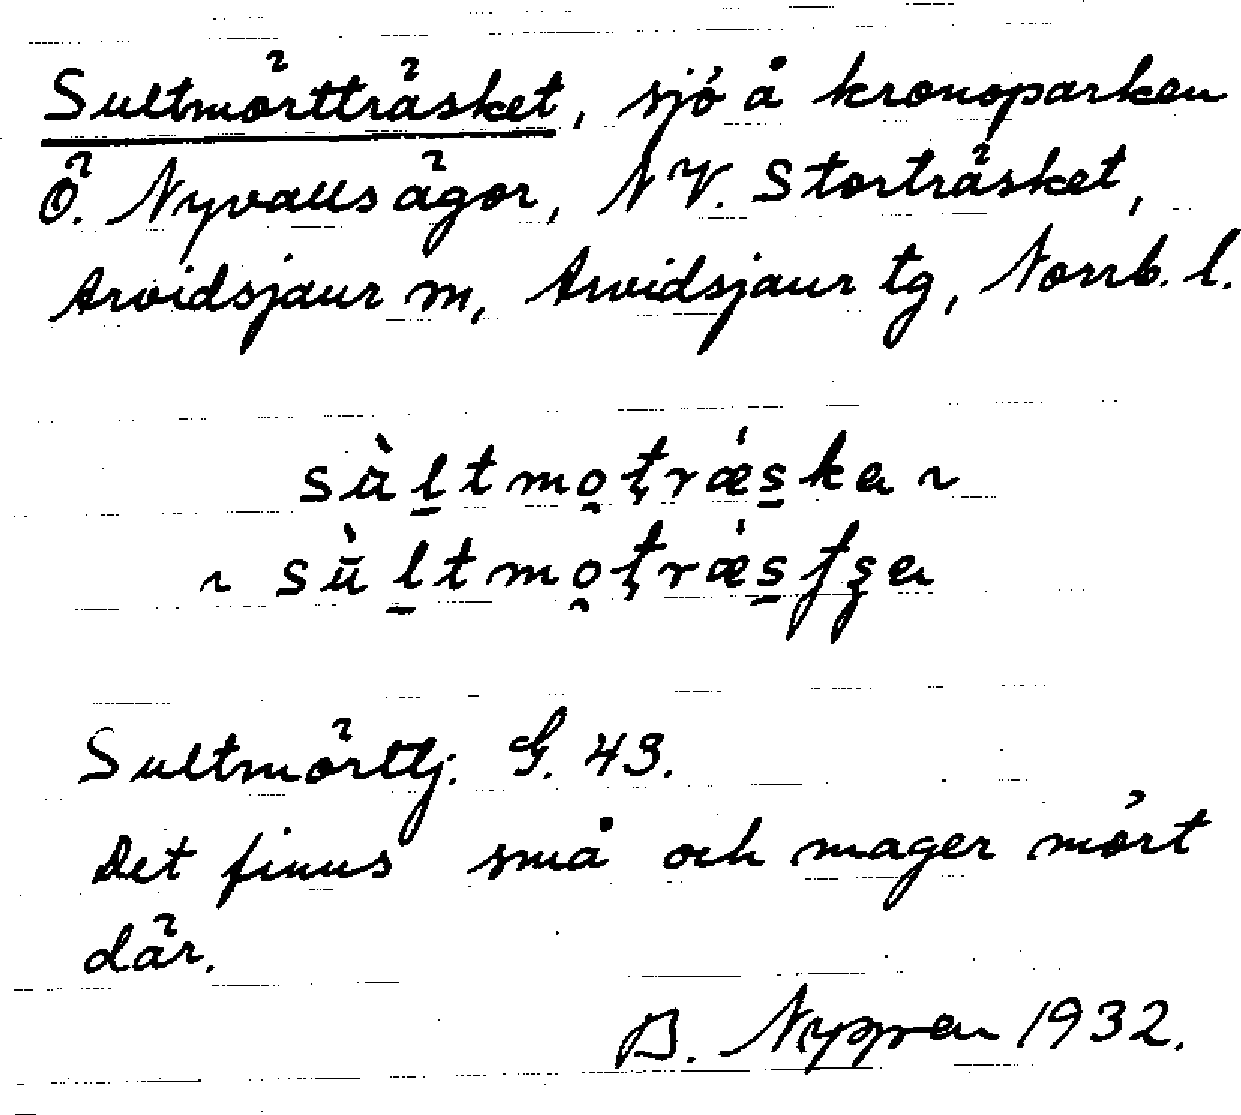 Sultmörtträsket, sjö å kronoparken
Ö. Nyvallsägor, NV. Storträsket,
Arvidsjaur sn, Arvidsjaur tg, Norrb. l.
sù̄l̠tmo̯ṭrǽs̠ka ~
~ sù̄l̠tmo̯ṭrǽs̠ʃʂa
Sultmörttj. G. 43.
Det finns små och mager mört
där.
B. 1932.